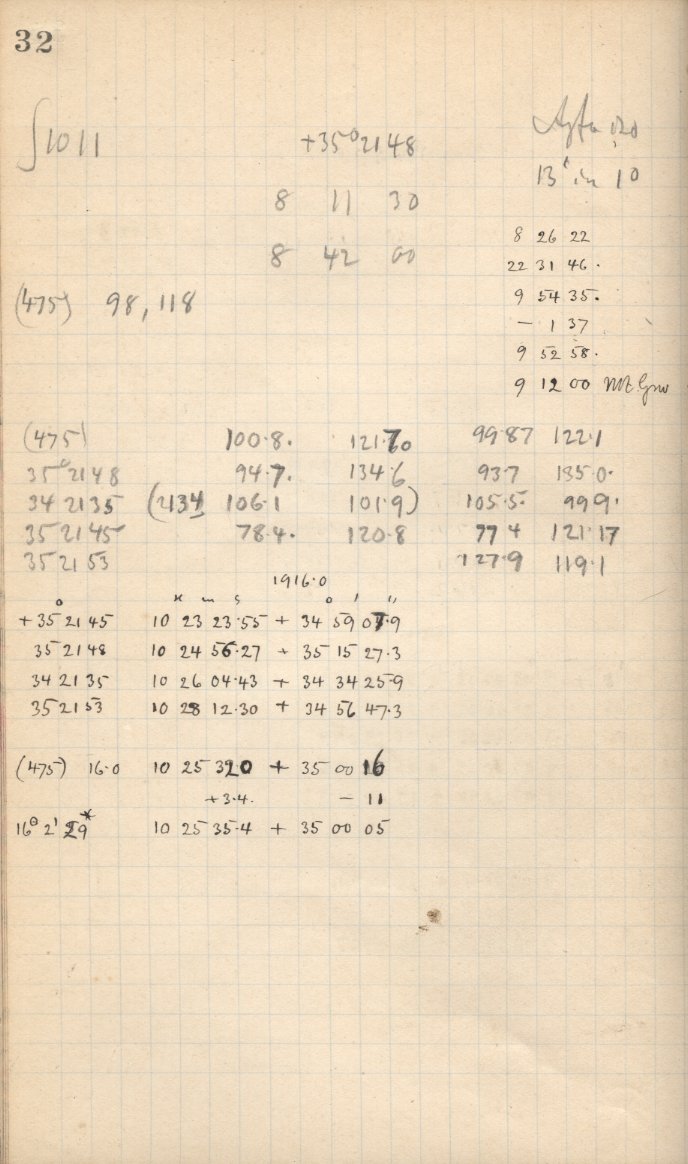 32
∫1011 +35°2148
8 11 30
8 42 00
(475) 98, 118
13' in 10
8 26 22
22 31 46.
9 54 35.
– 1 37
9 52 58.
9 12 00
(475) 100.8. 121.70 99.87 122.1
35°2148 94.7. 134.6 93.7 135.0.
34 2135 (2134 106.1 101.9) 105.5. 99.9.
35 2145 78.4. 120.8 77 4 121.17
35 21 53 127.9 119.1
1916.0
° H m S ° ' "
+35 2145 10 23 23.55 + 34 59 07.9
35 2148 10 24 56.27 + 35 15 27.3
34 2135 10 26 04.43 + 34 34 25.9
35 2153 10 28 12.30 + 34 56 47.3
(475) 16.0 10 25 32.0 + 35 00 16
+3.4. – 11
16° 2' 29* 10 25 35.4 + 35 00 05